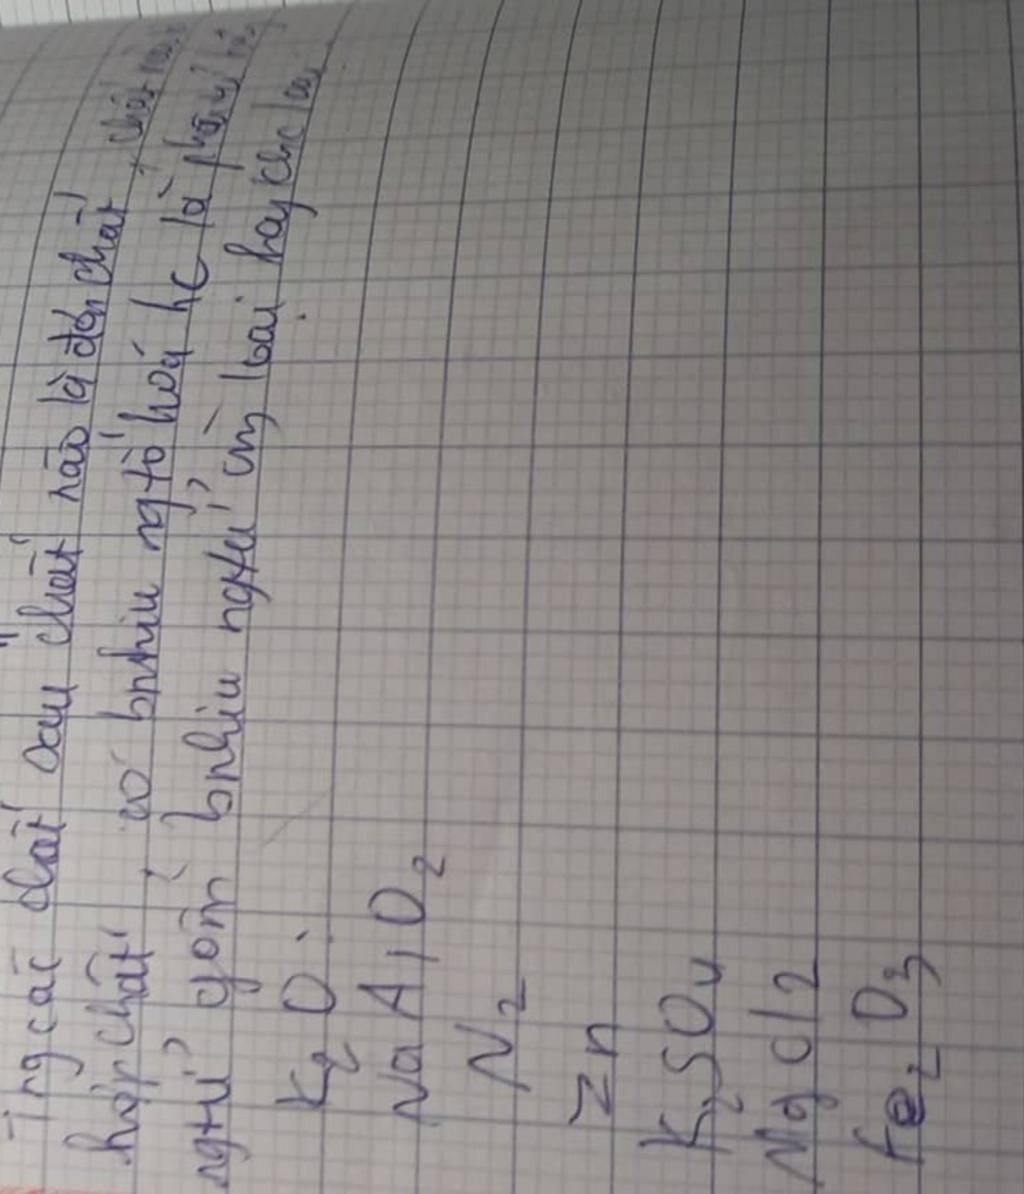 Trg các chất sau chất nào là đơn chất, chất nào
hợp chất, có bnhiu ngtố hoá hc là phân tử
ngtử gồm bnhiu ngtử cùng loại hay khc loại
K2O
NaAlO2
N2
Zn
K2SO4
MgCl2
Fe2O3